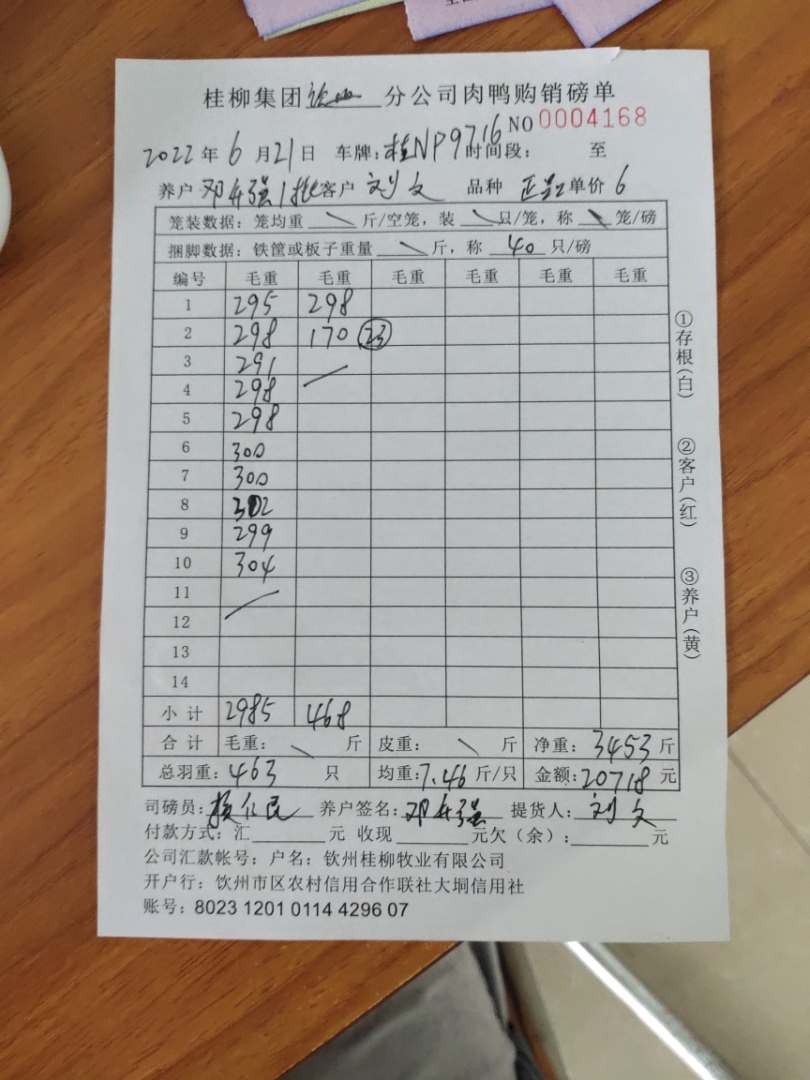 桂柳集团 分公司肉鸭购销磅单
NO 0004168
2022年6月21日 车牌:桂NP9716时间段: 至
养户 邓 强1批客户 刘文 品种 单价6
笼装数据:笼均重 \ 斤/空笼,装 \ 只/笼,称 \ 笼/磅
捆脚数据:铁筐或板子重量 \ 斤,称 40 只/磅
编号 毛重 毛重 毛重 毛重 毛重 毛重
1 295 298
2 298 170 23
3 291
4 298
5 298
6 300
7 300
8 302
9 299
10 304
11
12
13
14
小计 2985 468
合计 毛重: \ 斤 皮重: \ 斤 净重:3453斤
总羽重:463 只 均重:7.46斤/只 金额:20718元
司磅员: 养户签名:邓 强 提货人:刘文
付款方式:汇 元 收现 元欠(余): 元
公司汇款帐号:户名:钦州桂柳牧业有限公司
开户行:饮州市区农村信用合作联社大垌信用社
账号:8023 1201 0114 4296 07
①存根(白)
②客户(红)
③养户(黄)